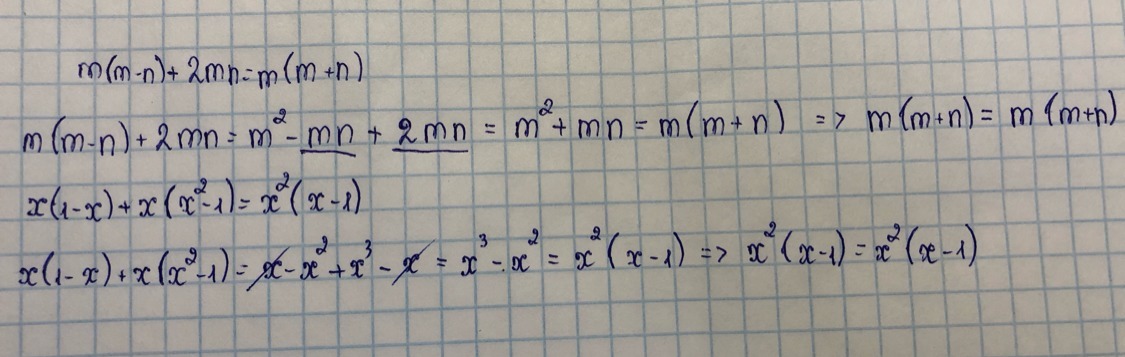 m(m-n)+2mn=m(m+n)
m(m-n)+2mn=m²-mn+2mn=m²+mn=m(m+n) => m(m+n)=m(m+n)
x(1-x)+x(x²-1)=x²(x-1)
x(1-x)+x(x²-1)=x-x²+x³-x=x³-x²=x²(x-1) => x²(x-1)=x²(x-1)